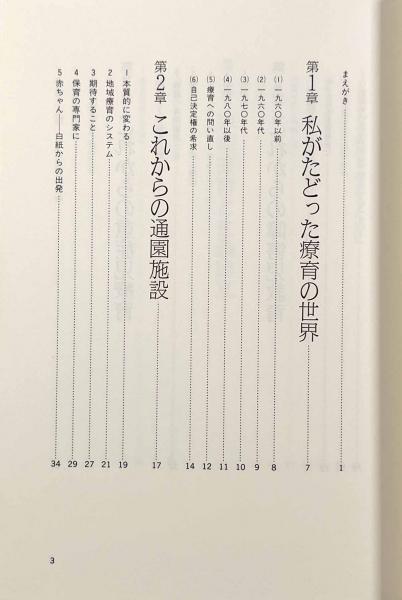 まえがき 1
第1章 私がたどった療育の世界 7
(1) 一九六〇年以前 8
(2) 一九六〇年代 9
(3) 一九七〇年代 10
(4) 一九八〇年以後 11
(5) 療育への問い直し 12
(6) 自己決定権の希求 14
第2章 これからの通園施設 17
1 本質的に変わる 19
2 地域療育のシステム 21
3 期待すること 27
4 保育の専門家に 29
5 赤ちゃん――白紙からの出発 34
3